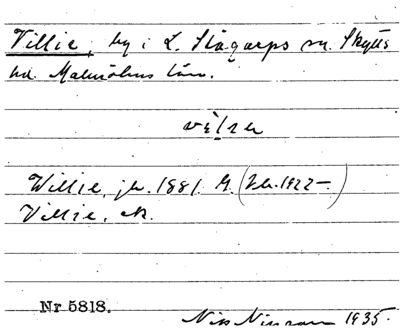 Villie, by i L. Slågarps sn. Skytts
hd. Malmöhus län.
Willie, jb. 1881. G. (Jb. 1922–)
Villie, ek.
Nr 5818.
Nils Nilsson 1935.